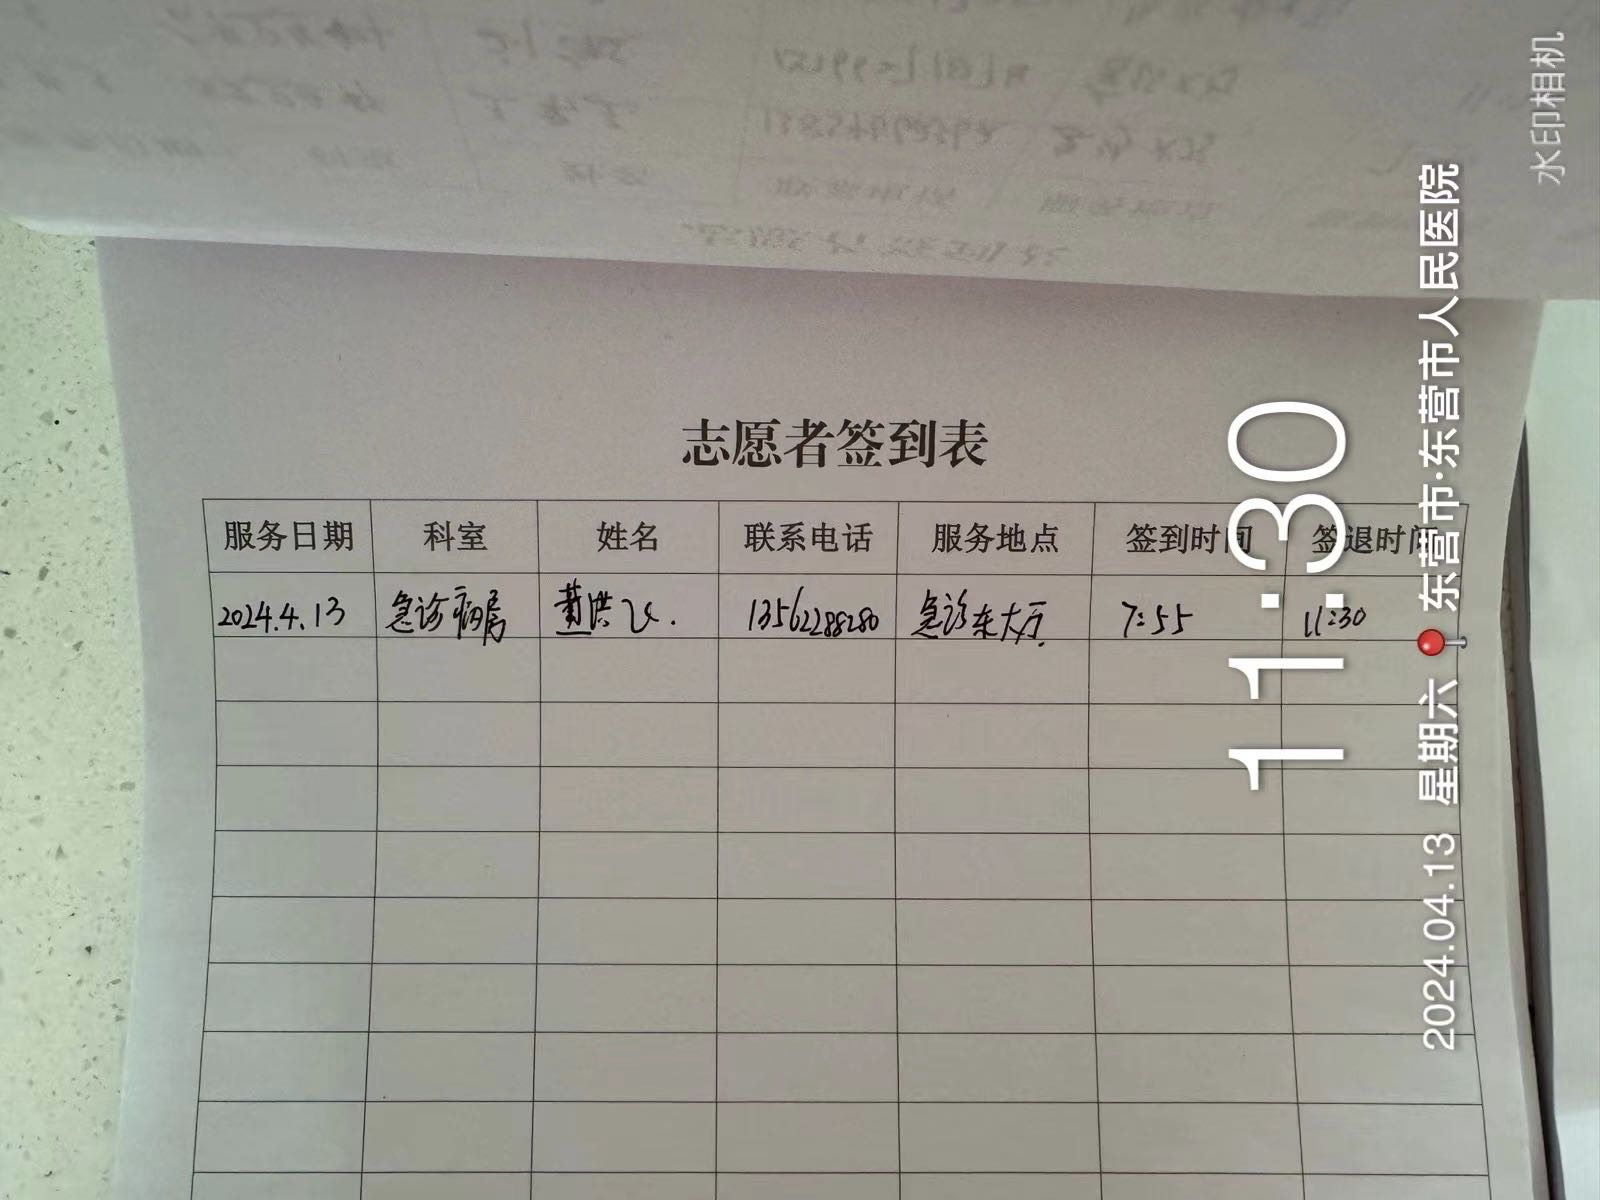 志愿者签到表
服务日期 科室 姓名 联系电话 服务地点 签到时间 签退时间
2024.4.13 急诊病房 黄洪飞. 13562288280 急诊东大厅. 7:55 11:30
11:30
2024.04.13 星期六 东营市·东营市人民医院
水印相机